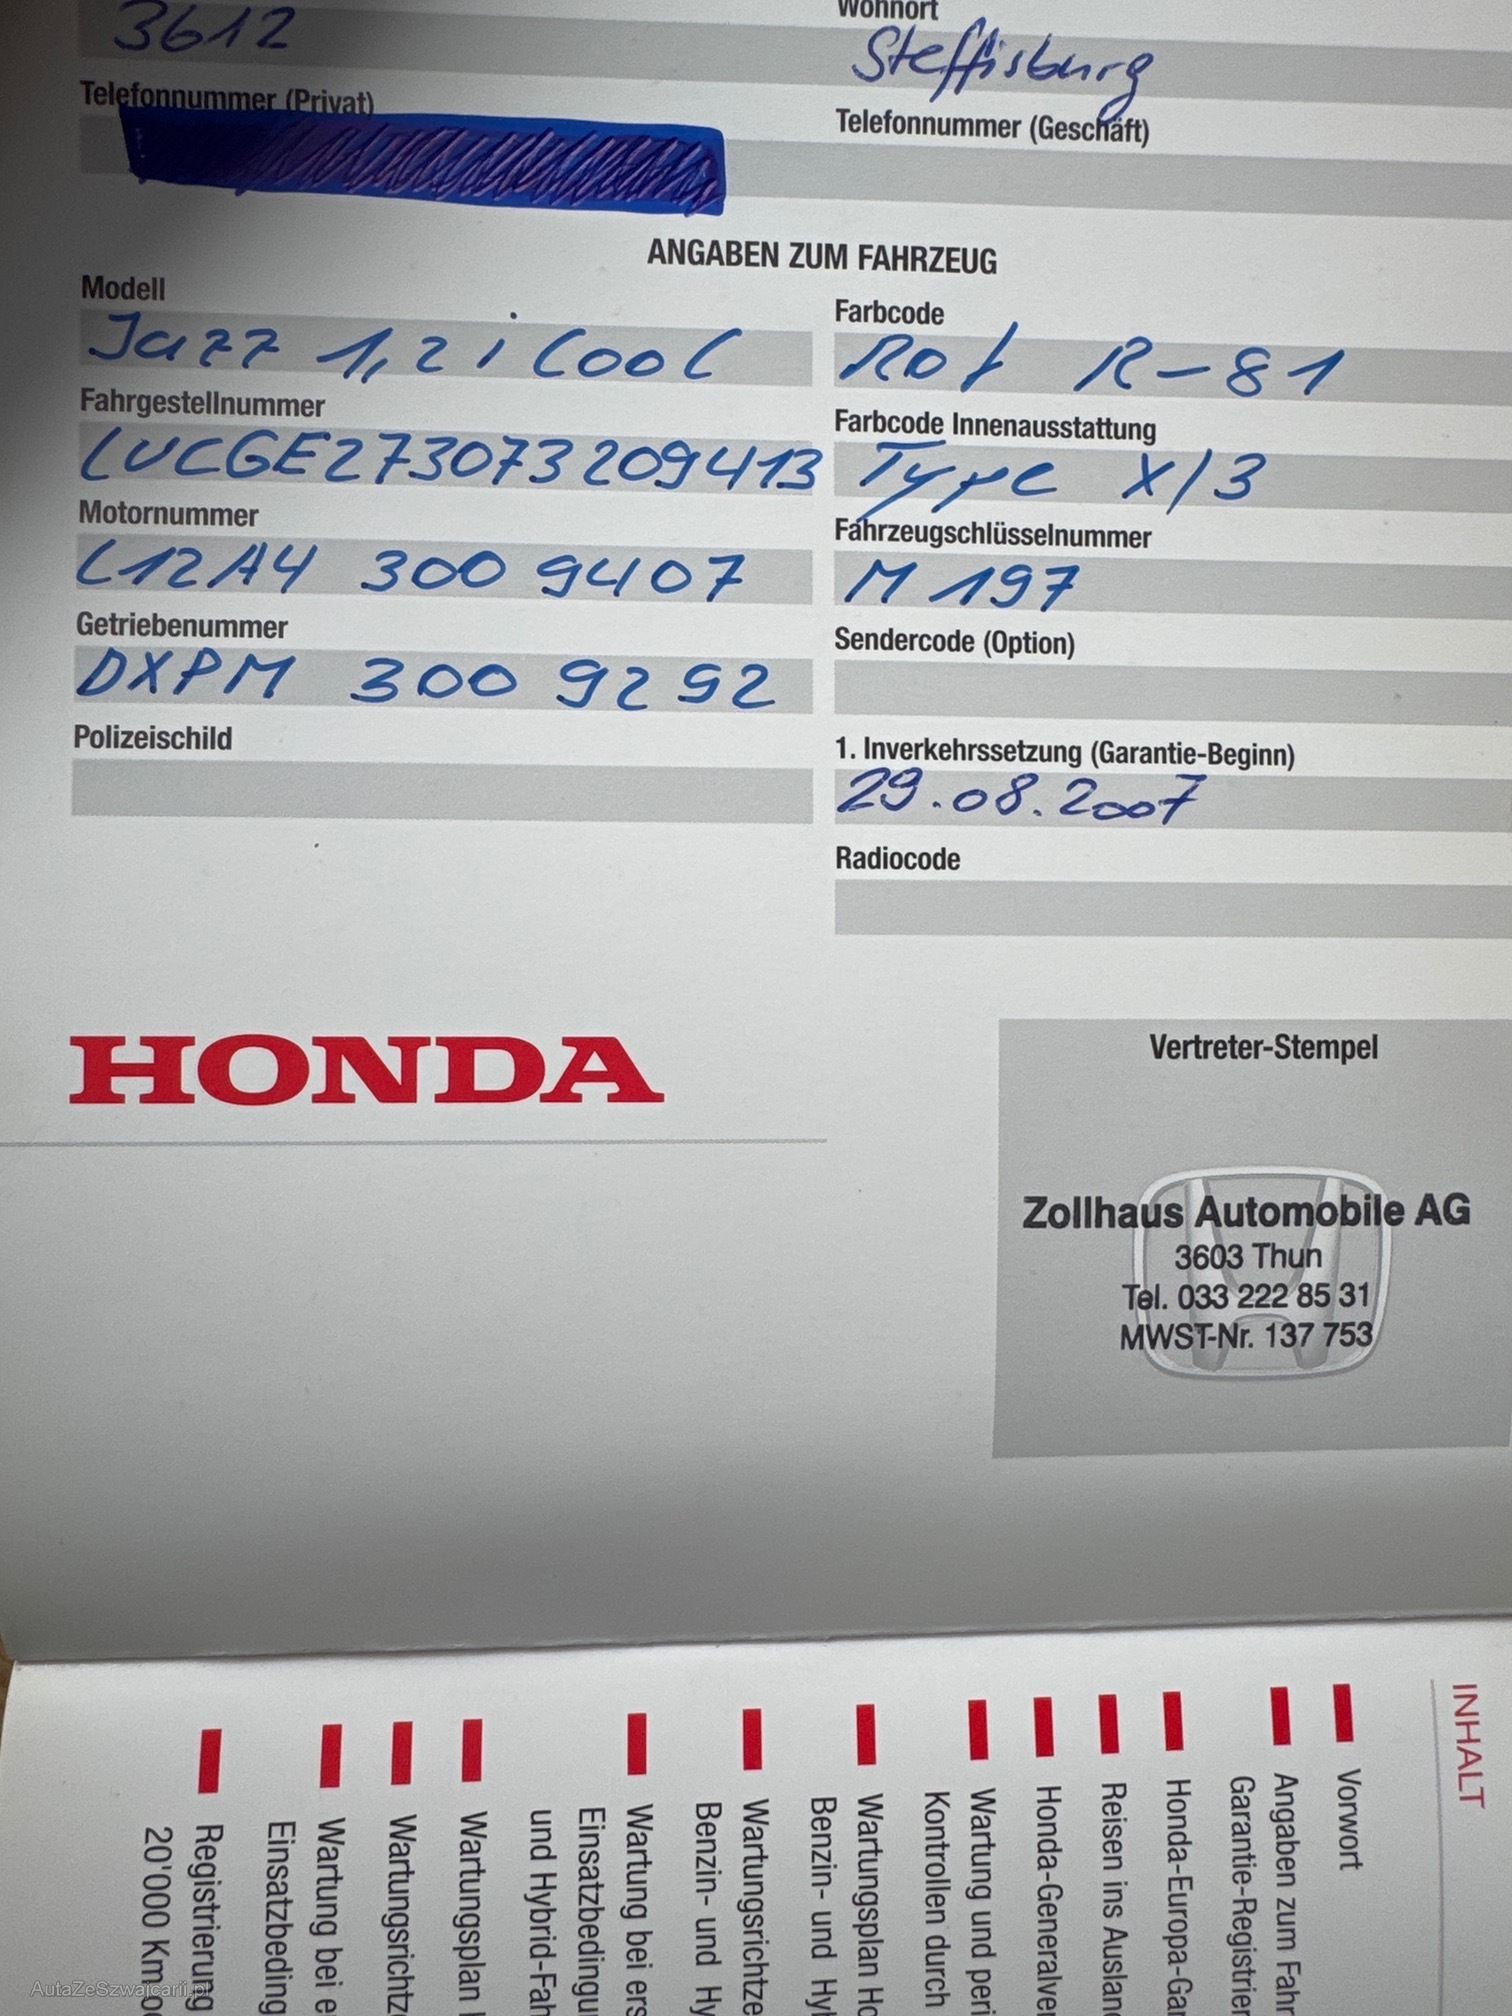 Wohnort
3612 Steffisburg
Telefonnummer (Privat) Telefonnummer (Geschäft)
ANGABEN ZUM FAHRZEUG
Modell
Jazz 1,2 i Cool
Farbcode
Rot R-81
Fahrgestellnummer
LUCGE273073209413
Farbcode Innenausstattung
Type X/3
Motornummer
L12A4 300 9407
Fahrzeugschlüsselnummer
M 197
Getriebenummer
DXPM 300 9292
Sendercode (Option)
Polizeischild
1. Inverkehrssetzung (Garantie-Beginn)
29.08.2007
Radiocode
HONDA
Vertreter-Stempel
Zollhaus Automobile AG
3603 Thun
Tel. 033 222 85 31
MWST-Nr. 137 753
INHALT
Vorwort
Angaben zum Fahr
Garantie-Registrier
Honda-Europa-Ga
Reisen ins Auslan
Honda-Generalver
Wartung und peri
Kontrollen durch
Wartungsplan Ho
Benzin- und Hyl
Wartungsrichtze
Benzin- und Hy
Wartung bei ers
Einsatzbedingu
und Hybrid-Fah
Wartungsplan
Wartungsrichtz
Wartung bei e
Einsatzbeding
Registrierung
20'000 Km
AutaZeSzwajcarii.pl